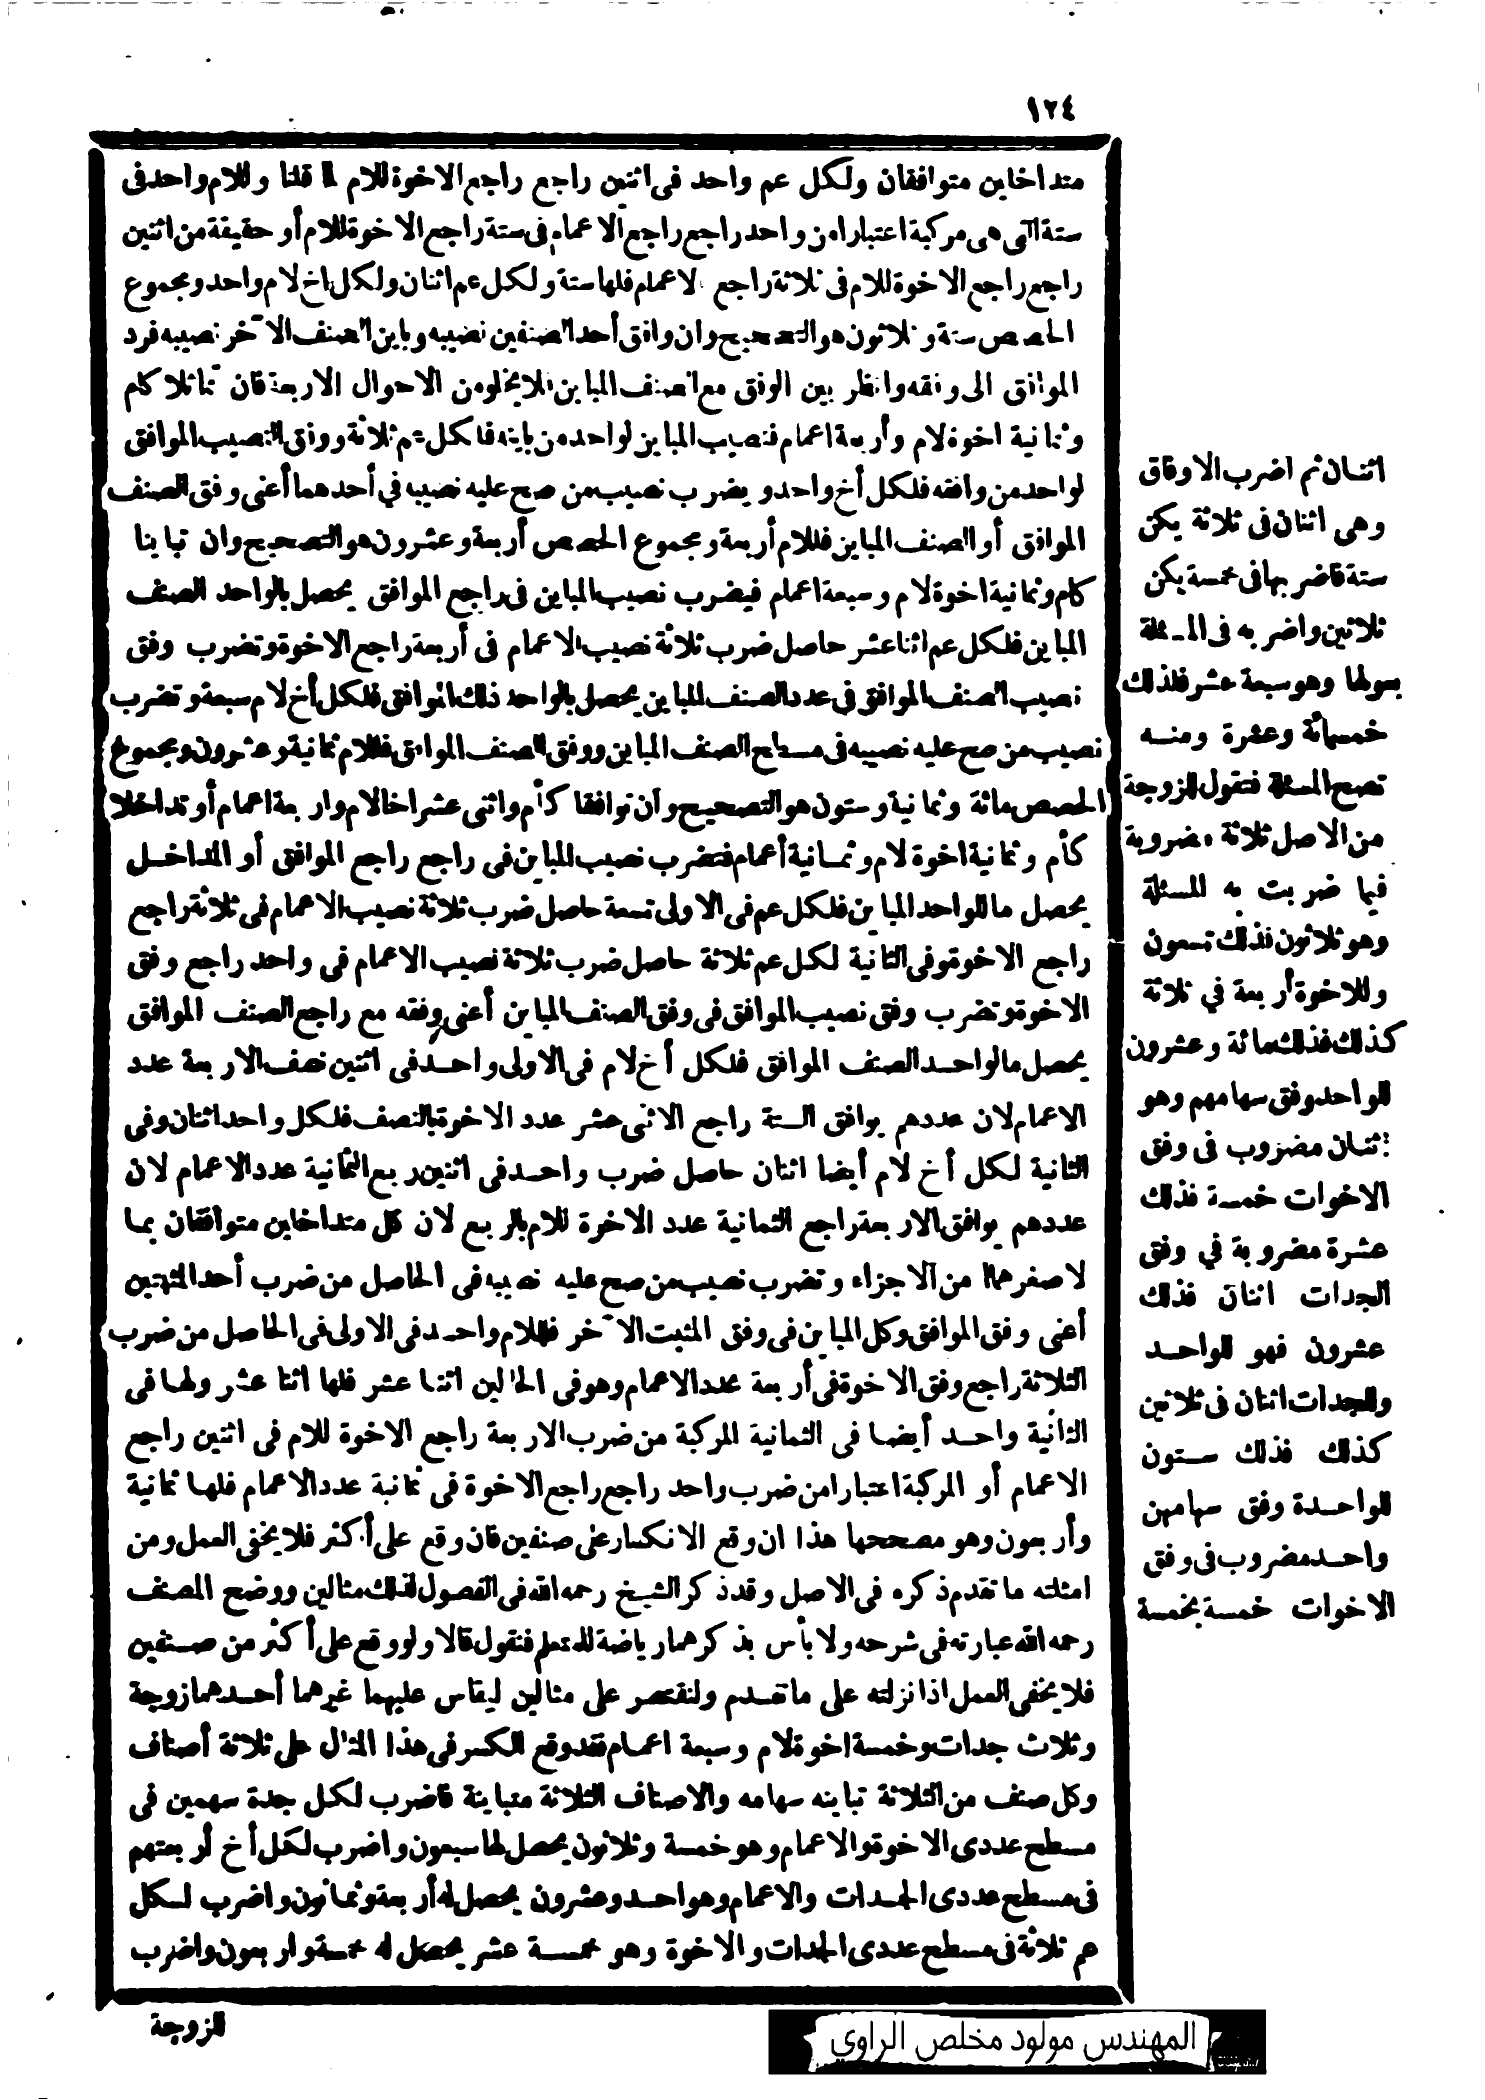 ١٢٤
متداخلين متوافقان ولكل عم واحد فى اثنين راجع راجع الاخوة للام لما قلنا وللام واحد فى
ستة التى هى مركبة اعتبارا من واحد راجع راجع الاعمام فى ستة راجع الاخوة للام أو حقيقة من اثنين
راجع راجع الاخوة للام فى ثلاثة راجع الاعمام فلها ستة ولكل عم اثنان ولكل اخ لام واحد ومجموع
الحصص ستة وثلاثون هو التصحيح وان وافق أحد الصنفين نصيبه وباين الصنف الآخر نصيبه فرد
الموافق الى وفقه وانظر بين الوفق مع الصنف المباين فلا يخلو من الاحوال الاربعة فان تماثلا كام
وثمانية اخوة لام وأربعة اعمام فنصيب المباين لواحد من باينه فلكل عم ثلاثة ووفق النصيب الموافق
لواحد من وافقه فلكل أخ واحد ويضرب نصيب من صح عليه نصيبه في أحدهما أعنى وفق الصنف
الموافق أو الصنف المباين فللام أربعة ومجموع الحصص أربعة وعشرون هو التصحيح وان تباينا
كام وثمانية اخوة لام وسبعة اعمام فيضرب نصيب المباين فى راجع الموافق يحصل بالواحد الصنف
المباين فلكل عم اثنا عشر حاصل ضرب ثلاثة نصيب الاعمام فى أربعة راجع الاخوة وتضرب وفق
نصيب الصنف الموافق فى عدد الصنف المباين يحصل بالواحد ذلك الموافق فلكل أخ لام سبعة وتضرب
نصيب من صح عليه نصيبه فى مسطح الصنف المباين ووفق الصنف الموافق فللام ثمانية وعشرون ومجموع
الحصص مائة وثمانية وستون هو التصحيح وان توافقا كأم واثنى عشر اخا لام واربعة اعمام أو تداخلا
كأم وثمانية اخوة لام وثمانية أعمام فتضرب نصيب المباين فى راجع راجع الموافق أو المتداخل
يحصل ما للواحد المباين فلكل عم فى الاولى تسعة حاصل ضرب ثلاثة نصيب الاعمام فى ثلاثة راجع
راجع الاخوة وفى الثانية لكل عم ثلاثة حاصل ضرب ثلاثة نصيب الاعمام فى واحد راجع وفق
الاخوة وتضرب وفق نصيب الموافق فى وفق الصنف المباين أعنى وفقه مع راجع الصنف الموافق
يحصل ما لواحد الصنف الموافق فلكل أخ لام فى الاولى واحد فى اثنين نصف الاربعة عدد
الاعمام لان عددهم يوافق الستة راجع الاثنى عشر عدد الاخوة بالنصف فلكل واحد اثنان وفى
الثانية لكل أخ لام أيضا اثنان حاصل ضرب واحد فى اثنين ربع الثمانية عدد الاعمام لان
عددهم يوافق الاربعة راجع الثمانية عدد الاخوة للام بالربع لان كل متداخلين متوافقان بما
لاصغرهما من الاجزاء وتضرب نصيب من صح عليه نصيبه فى الحاصل من ضرب أحد المثبتين
أعنى وفق الموافق وكل المباين فى وفق المثبت الآخر فللام واحد فى الاولى فى الحاصل من ضرب
الثلاثة راجع وفق الاخوة فى أربعة عدد الاعمام وهو فى الحالين اثنا عشر فلها اثنا عشر ولها فى
الثانية واحد أيضا فى الثمانية المركبة من ضرب الاربعة راجع الاخوة للام فى اثنين راجع
الاعمام أو المركبة اعتبارا من ضرب واحد راجع راجع الاخوة فى ثمانية عدد الاعمام فلها ثمانية
وأربعون وهو مصححها هذا ان وقع الانكسار على صنفين فان وقع على أكثر فلا يخفى العمل ومن
امثلته ما تقدم ذكره فى الاصل وقد ذكر الشيخ رحمه الله فى الفصول لذلك مثالين ووضع المصنف
رحمه الله عبارته فى شرحه ولا بأس بذكرهما رياضة للمتعلم فنقول قالا ولو وقع على أكثر من صنفين
فلا يخفى العمل اذا نزلته على ما تقدم ولنقتصر على مثالين ليقاس عليهما غيرهما أحدهما زوجة
وثلاث جدات وخمسة اخوة لام وسبعة اعمام فقد وقع الكسر فى هذا المثال على ثلاثة أصناف
وكل صنف من الثلاثة تباينه سهامه والاصناف الثلاثة متباينة فاضرب لكل جدة سهمين فى
مسطح عددى الاخوة والاعمام وهو خمسة وثلاثون يحصل لها سبعون واضرب لكل أخ أربعتهم
فى مسطح عددى الجدات والاعمام وهو احد وعشرون يحصل له أربعة وثمانون واضرب لكل
عم ثلاثة فى مسطح عددى الجدات والاخوة وهو خمسة عشر يحصل له خمسة واربعون واضرب
للزوجة
اثنان ثم اضرب الاوفاق
وهى اثنان فى ثلاثة يكن
ستة فاضربها فى خمسة يكن
ثلاثين واضربه فى المسئلة
بعولها وهو سبعة عشر فذلك
خمسمائة وعشرة ومنه
تصح المسئلة فتقول للزوجة
من الاصل ثلاثة مضروبة
فيما ضربت به المسئلة
وهو ثلاثون فذلك تسعون
وللاخوة أربعة في ثلاثة
كذلك فذلك مائة وعشرون
للواحد وفق سهامهم وهو
اثنان مضروب فى وفق
الاخوات خمسة فذلك
عشرة مضروبة في وفق
الجدات اثنان فذلك
عشرون فهو للواحد
وللجدات اثنان فى ثلاثين
كذلك فذلك ستون
للواحدة وفق سهامهن
واحد مضروب فى وفق
الاخوات خمسة بخمسة
المهندس مولود مخلص الراوي